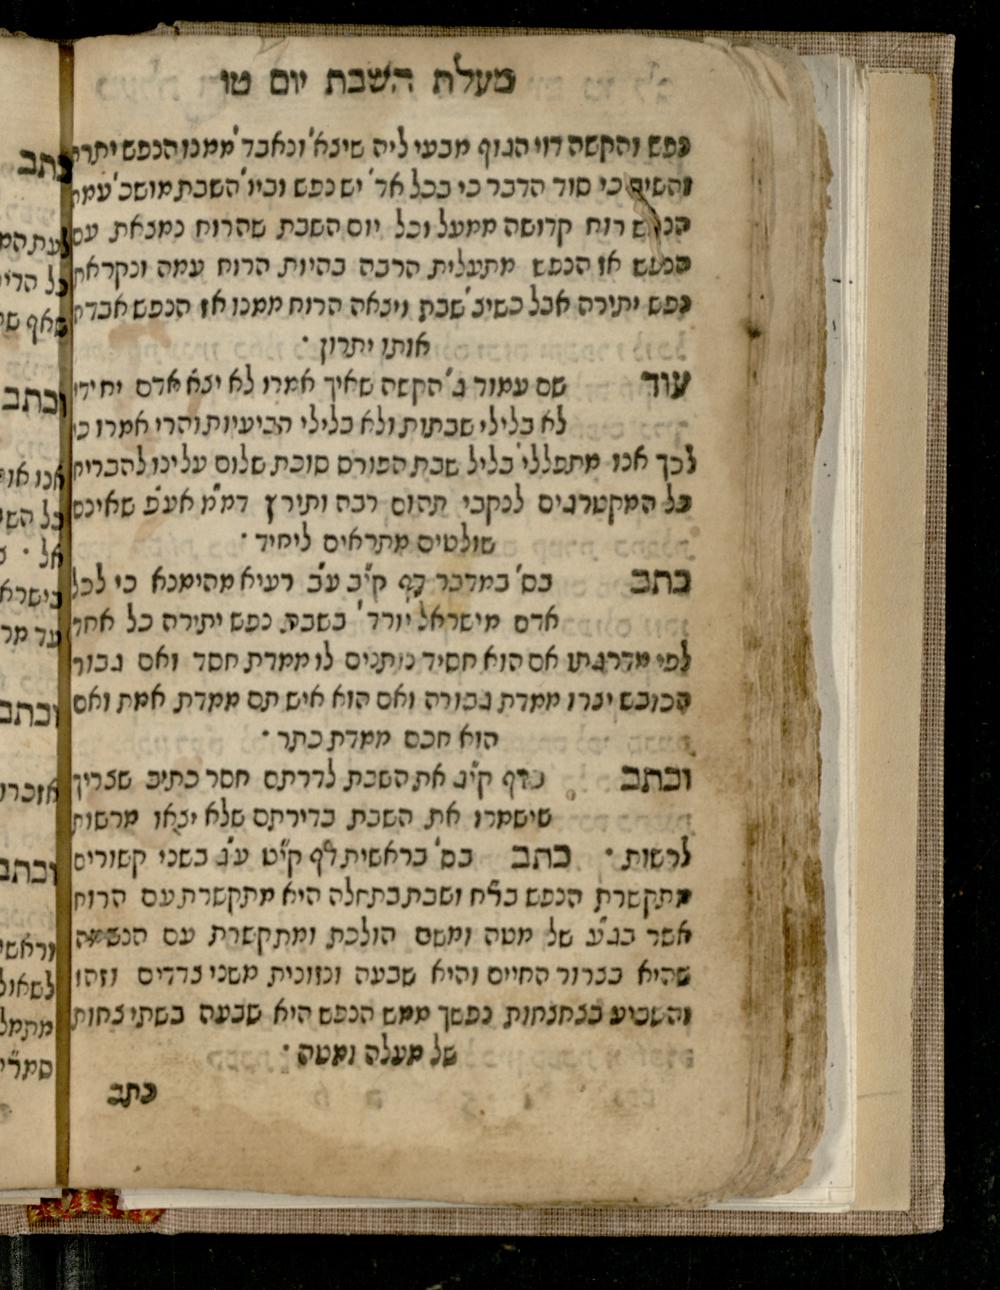 מעלת השבת יום טו
נפש והקשה דוי הגוף מבעי ליה שיצא' ונאבד' ממנו הנפש יתרה
והשיב כי סוד הדבר כי בכל אד' יש נפש וביו' השבת מושכ' עמה
הנפש רוח קדושה ממעל וכל יום השבת שהרוח נמצאת עם
הנפש אז הנפש מתעלית הרבה בהיות הרוח עמה ונקראת
נפש יתירה אבל כשיצ' שבת ויצאה הרוח ממנו אז הנפש אבדה
אותו יתרון ·
עוד שם עמוד ג' הקשה שאיך אמרו לא יצא אדם יחידי
לא בלילי שבתות ולא בלילי הביעיות והרי אמרו כי
לכך אנו מתפללי' בליל שבת הפורס סוכת שלום עלינו להבריח
כל המקטרגים לנקבי תהום רבה ותירץ דמ"מ אע"פ שאינם
שולטים מתראים ליחיד ·
כתב בס' במדבר דף קי"ב ע"ב רעיא מהימנא כי לכל
אדם מישראל יורד' בשבת נפש יתירה כל אחד
לפי מדרגתו אם הוא חסיד נותנים לו ממדת חסד ואם גבור
הכובש יצרו ממדת גבורה ואם הוא איש תם ממדת אמת ואם
הוא חכם ממדת כתר ·
וכתב בדף קי"ג את השבת לדרתם חסר כתיב שצריך
שישמרו את השבת בדירתם שלא יצאו מרשות
לרשות · כתב בס' בראשית דף קי"ט ע"ג בשני קשורים
מתקשרת הנפש בר"ח ושבת בתחלה היא מתקשרת עם הרוח
אשר בג"ע של מטה ומשם הולכת ומתקשרת עם הנשמה
שהיא בצרור החיים והיא שבעה ונזונית משני צדדים וזהו
והשביע בצחצחות נפשך ממש הנפש היא שבעה בשתי צחות
של מעלה ומטה ·
כתב